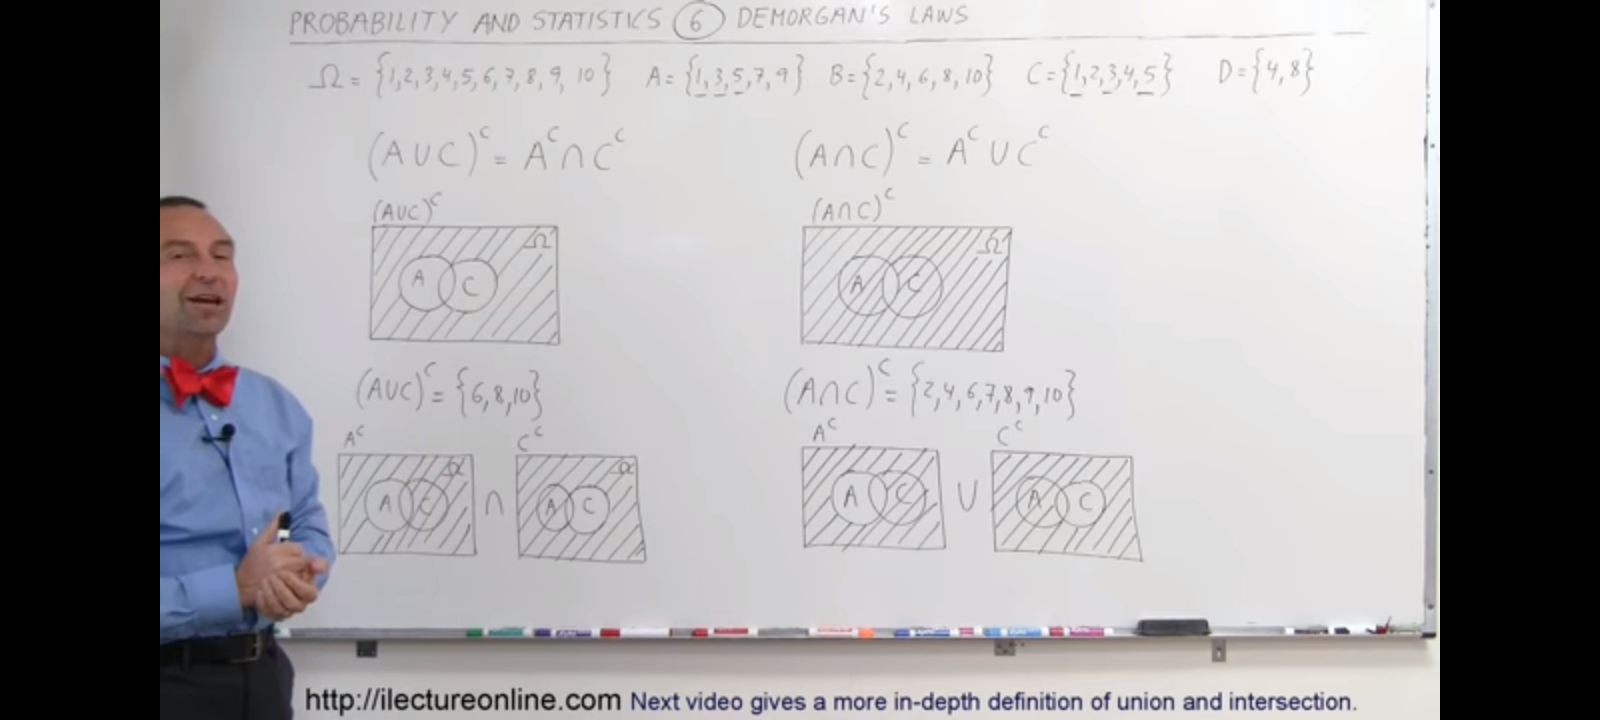 PROBABILITY AND STATISTICS 6 DEMORGAN'S LAWS
Ω = {1,2,3,4,5,6,7,8,9,10} A = {1,3,5,7,9} B = {2,4,6,8,10} C = {1,2,3,4,5} D = {4,8}
(A∪C)ᶜ = Aᶜ∩Cᶜ (A∩C)ᶜ = Aᶜ∪Cᶜ
(A∪C)ᶜ (A∩C)ᶜ
Ω Ω
A C A C
(A∪C)ᶜ = {6,8,10} (A∩C)ᶜ = {2,4,6,7,8,9,10}
Aᶜ Cᶜ Aᶜ Cᶜ
Ω Ω
A C ∩ A C A C ∪ A C
http://ilectureonline.com Next video gives a more in-depth definition of union and intersection.